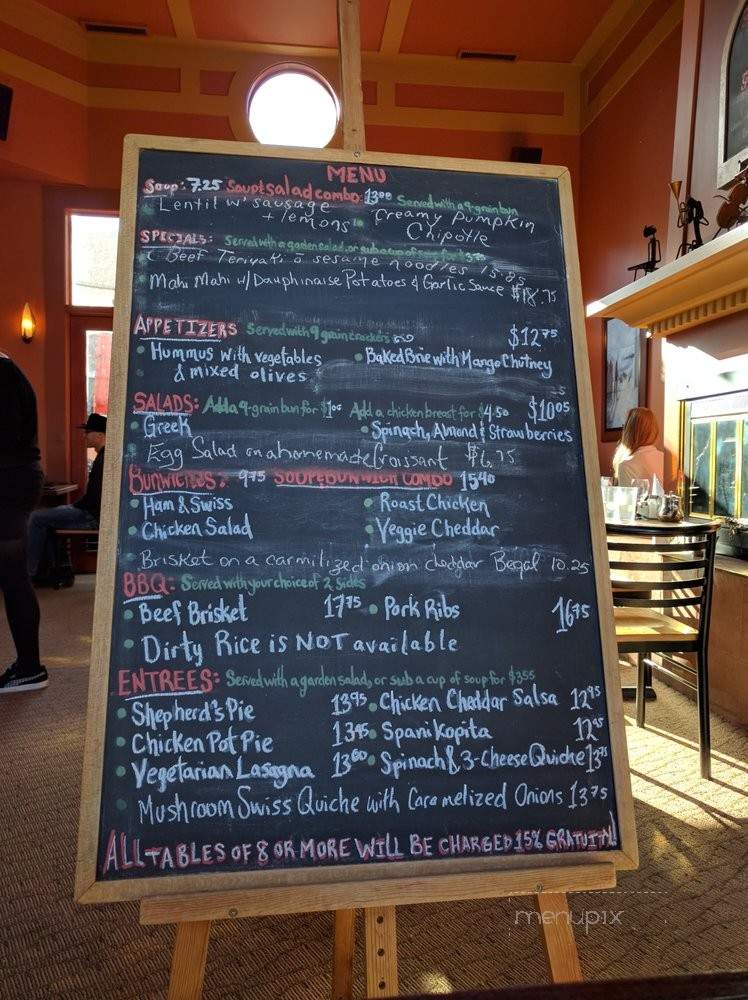 MENU
Soup: 7.25 Soup & Salad combo: 13.00 Served with a 9-grain bun
Lentil w/ sausage + lemons
Creamy Pumpkin Chipotle
SPECIALS: Served with a garden salad, or sub a cup of soup for
Beef Teriyaki sesame noodles 15.85
Mahi Mahi w/ Dauphinaise Potatoes & Garlic Sauce $18.75
APPETIZERS Served with 9 grain crackers $12.75
• Hummus with vegetables & mixed olives
• Baked Brie with Mango Chutney
SALADS: Add a 9-grain bun for $1.00 Add a chicken breast for $4.50 $10.05
• Greek • Spinach, Almond & Strawberries
Egg Salad on a homemade Croissant $6.75
BUNWICHES: 9.75 SOUP & BUNWICH COMBO 15.40
• Ham & Swiss • Roast Chicken
• Chicken Salad • Veggie Cheddar
Brisket on a carmilized onion cheddar Begal 10.25
BBQ: Served with your choice of 2 sides
• Beef Brisket 17.75 • Pork Ribs 16.75
• Dirty Rice is NOT available
ENTREES: Served with a garden salad, or sub a cup of soup for $3.55
• Shepherd's Pie 13.95 • Chicken Cheddar Salsa 12.95
• Chicken Pot Pie 13.45 • Spanikopita 12.45
• Vegetarian Lasagna 13.60 • Spinach & 3-Cheese Quiche 13.75
• Mushroom Swiss Quiche with Caramelized Onions 13.75
ALL TABLES OF 8 OR MORE WILL BE CHARGED 15% GRATUITY!
menupix